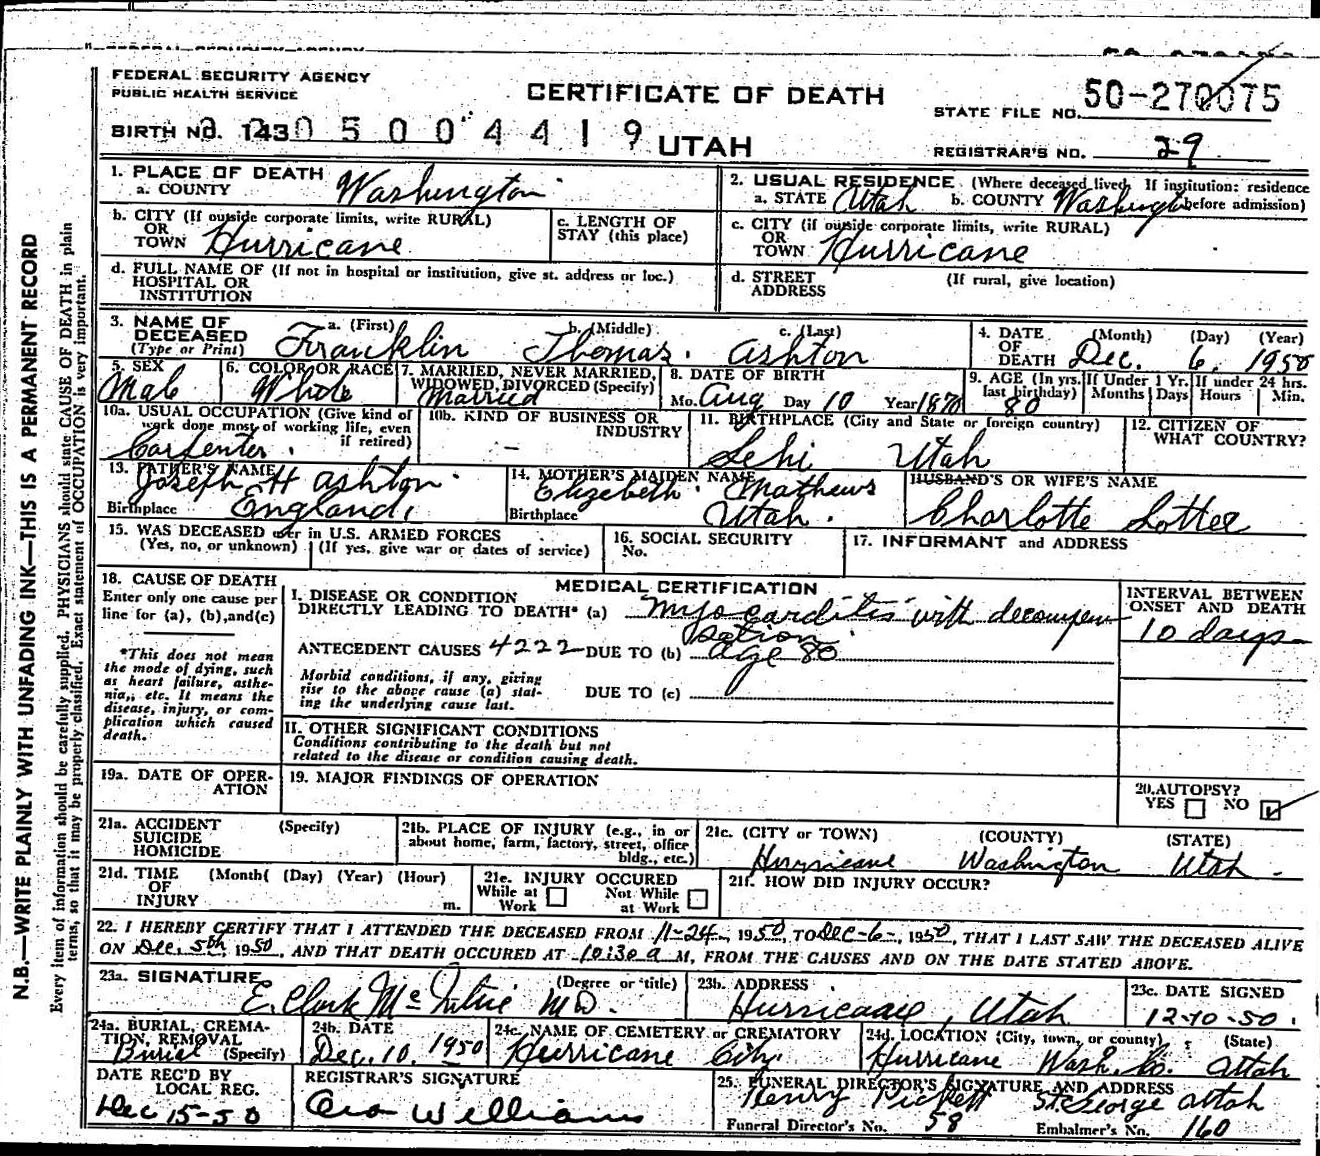 FEDERAL SECURITY AGENCY
PUBLIC HEALTH SERVICE
CERTIFICATE OF DEATH
STATE FILE NO. 50-270075
BIRTH NO. 143 0 5 0 0 4 4 1 9
UTAH
REGISTRAR'S NO. 29
1. PLACE OF DEATH
a. COUNTY Washington
2. USUAL RESIDENCE (Where deceased lived. If institution: residence
a. STATE Utah b. COUNTY Washington before admission)
b. CITY (If outside corporate limits, write RURAL)
OR
TOWN Hurricane
c. LENGTH OF
STAY (this place)
c. CITY (if outside corporate limits, write RURAL)
OR
TOWN Hurricane
d. FULL NAME OF (If not in hospital or institution, give st. address or loc.)
HOSPITAL OR
INSTITUTION
d. STREET (If rural, give location)
ADDRESS
3. NAME OF a. (First) b. (Middle) c. (Last)
DECEASED
(Type or Print) Franklin Thomas Ashton
4. DATE (Month) (Day) (Year)
OF
DEATH Dec. 6, 1950
5. SEX
Male
6. COLOR OR RACE
White
7. MARRIED, NEVER MARRIED,
WIDOWED, DIVORCED (Specify)
Married
8. DATE OF BIRTH
Mo. Aug Day 10 Year 1870
9. AGE (In yrs.
last birthday)
80
If Under 1 Yr.
Months Days
If under 24 hrs.
Hours Min.
10a. USUAL OCCUPATION (Give kind of
work done most of working life, even
if retired)
Carpenter
10b. KIND OF BUSINESS OR
INDUSTRY
-
11. BIRTHPLACE (City and State or foreign country)
Lehi Utah
12. CITIZEN OF
WHAT COUNTRY?
13. FATHER'S NAME
Joseph H Ashton
Birthplace England
14. MOTHER'S MAIDEN NAME
Elizebeth Mathews
Birthplace Utah.
HUSBAND'S OR WIFE'S NAME
Charlotte
15. WAS DECEASED ever in U.S. ARMED FORCES
(Yes, no, or unknown) (If yes, give war or dates of service)
16. SOCIAL SECURITY
No.
17. INFORMANT and ADDRESS
18. CAUSE OF DEATH
Enter only one cause per
line for (a), (b), and (c)
*This does not mean
the mode of dying, such
as heart failure, asthe-
nia, etc. It means the
disease, injury, or com-
plication which caused
death.
MEDICAL CERTIFICATION
I. DISEASE OR CONDITION
DIRECTLY LEADING TO DEATH* (a) Myocarditis with decompen
sation
ANTECEDENT CAUSES 4222 DUE TO (b) age 80
Morbid conditions, if any, giving
rise to the above cause (a) stat-
ing the underlying cause last.
DUE TO (c)
INTERVAL BETWEEN
ONSET AND DEATH
10 days
II. OTHER SIGNIFICANT CONDITIONS
Conditions contributing to the death but not
related to the disease or condition causing death.
19a. DATE OF OPER-
ATION
19. MAJOR FINDINGS OF OPERATION
20. AUTOPSY?
YES NO
21a. ACCIDENT (Specify)
SUICIDE
HOMICIDE
21b. PLACE OF INJURY (e.g., in or
about home, farm, factory, street, office
bldg., etc.)
21c. (CITY or TOWN) (COUNTY) (STATE)
Hurricane Washington Utah
21d. TIME (Month( (Day) (Year) (Hour)
OF
INJURY m.
21e. INJURY OCCURED
While at Work Not While at Work
21f. HOW DID INJURY OCCUR?
22. I HEREBY CERTIFY THAT I ATTENDED THE DECEASED FROM 11-24, 1950, TO Dec-6-, 1950, THAT I LAST SAW THE DECEASED ALIVE
ON Dec. 5th, 1950, AND THAT DEATH OCCURED AT 10:30 a M, FROM THE CAUSES AND ON THE DATE STATED ABOVE.
23a. SIGNATURE (Degree or title)
E. Clark McIntire MD.
23b. ADDRESS
Hurricane, Utah
23c. DATE SIGNED
12-10-50.
24a. BURIAL, CREMA-
TION, REMOVAL
(Specify) Burial
24b. DATE
Dec. 10, 1950
24c. NAME OF CEMETERY or CREMATORY
Hurricane City.
24d. LOCATION (City, town, or county) (State)
Hurricane Wash. Co. Utah
DATE REC'D BY
LOCAL REG.
Dec 15-50
REGISTRAR'S SIGNATURE
Ora Williams
25. FUNERAL DIRECTOR'S SIGNATURE AND ADDRESS
Henry Pickett St. George Utah
Funeral Director's No. 58 Embalmer's No. 160
N.B.—WRITE PLAINLY WITH UNFADING INK—THIS IS A PERMANENT RECORD
Every item of information should be carefully supplied. PHYSICIANS should state CAUSE OF DEATH in plain
terms, so that it may be properly classified. Exact statement of OCCUPATION is very important.